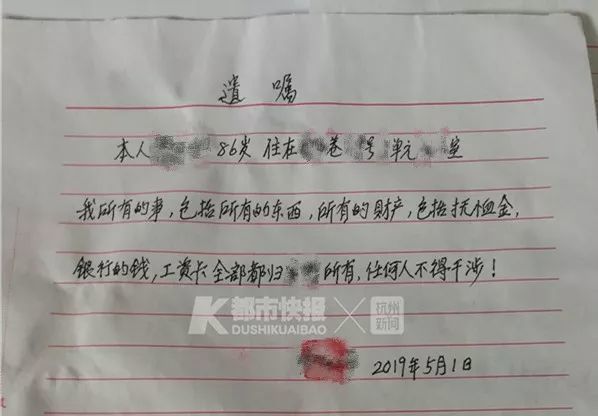 遗嘱
本人 86岁 住在 巷 号 单元 室
我所有的事,包括所有的东西,所有的财产,包括抚恤金,
银行的钱,工资卡全部都归 所有,任何人不得干涉!
K都市快报 × 杭州新闻
DUSHIKUAIBAO
2019年5月1日